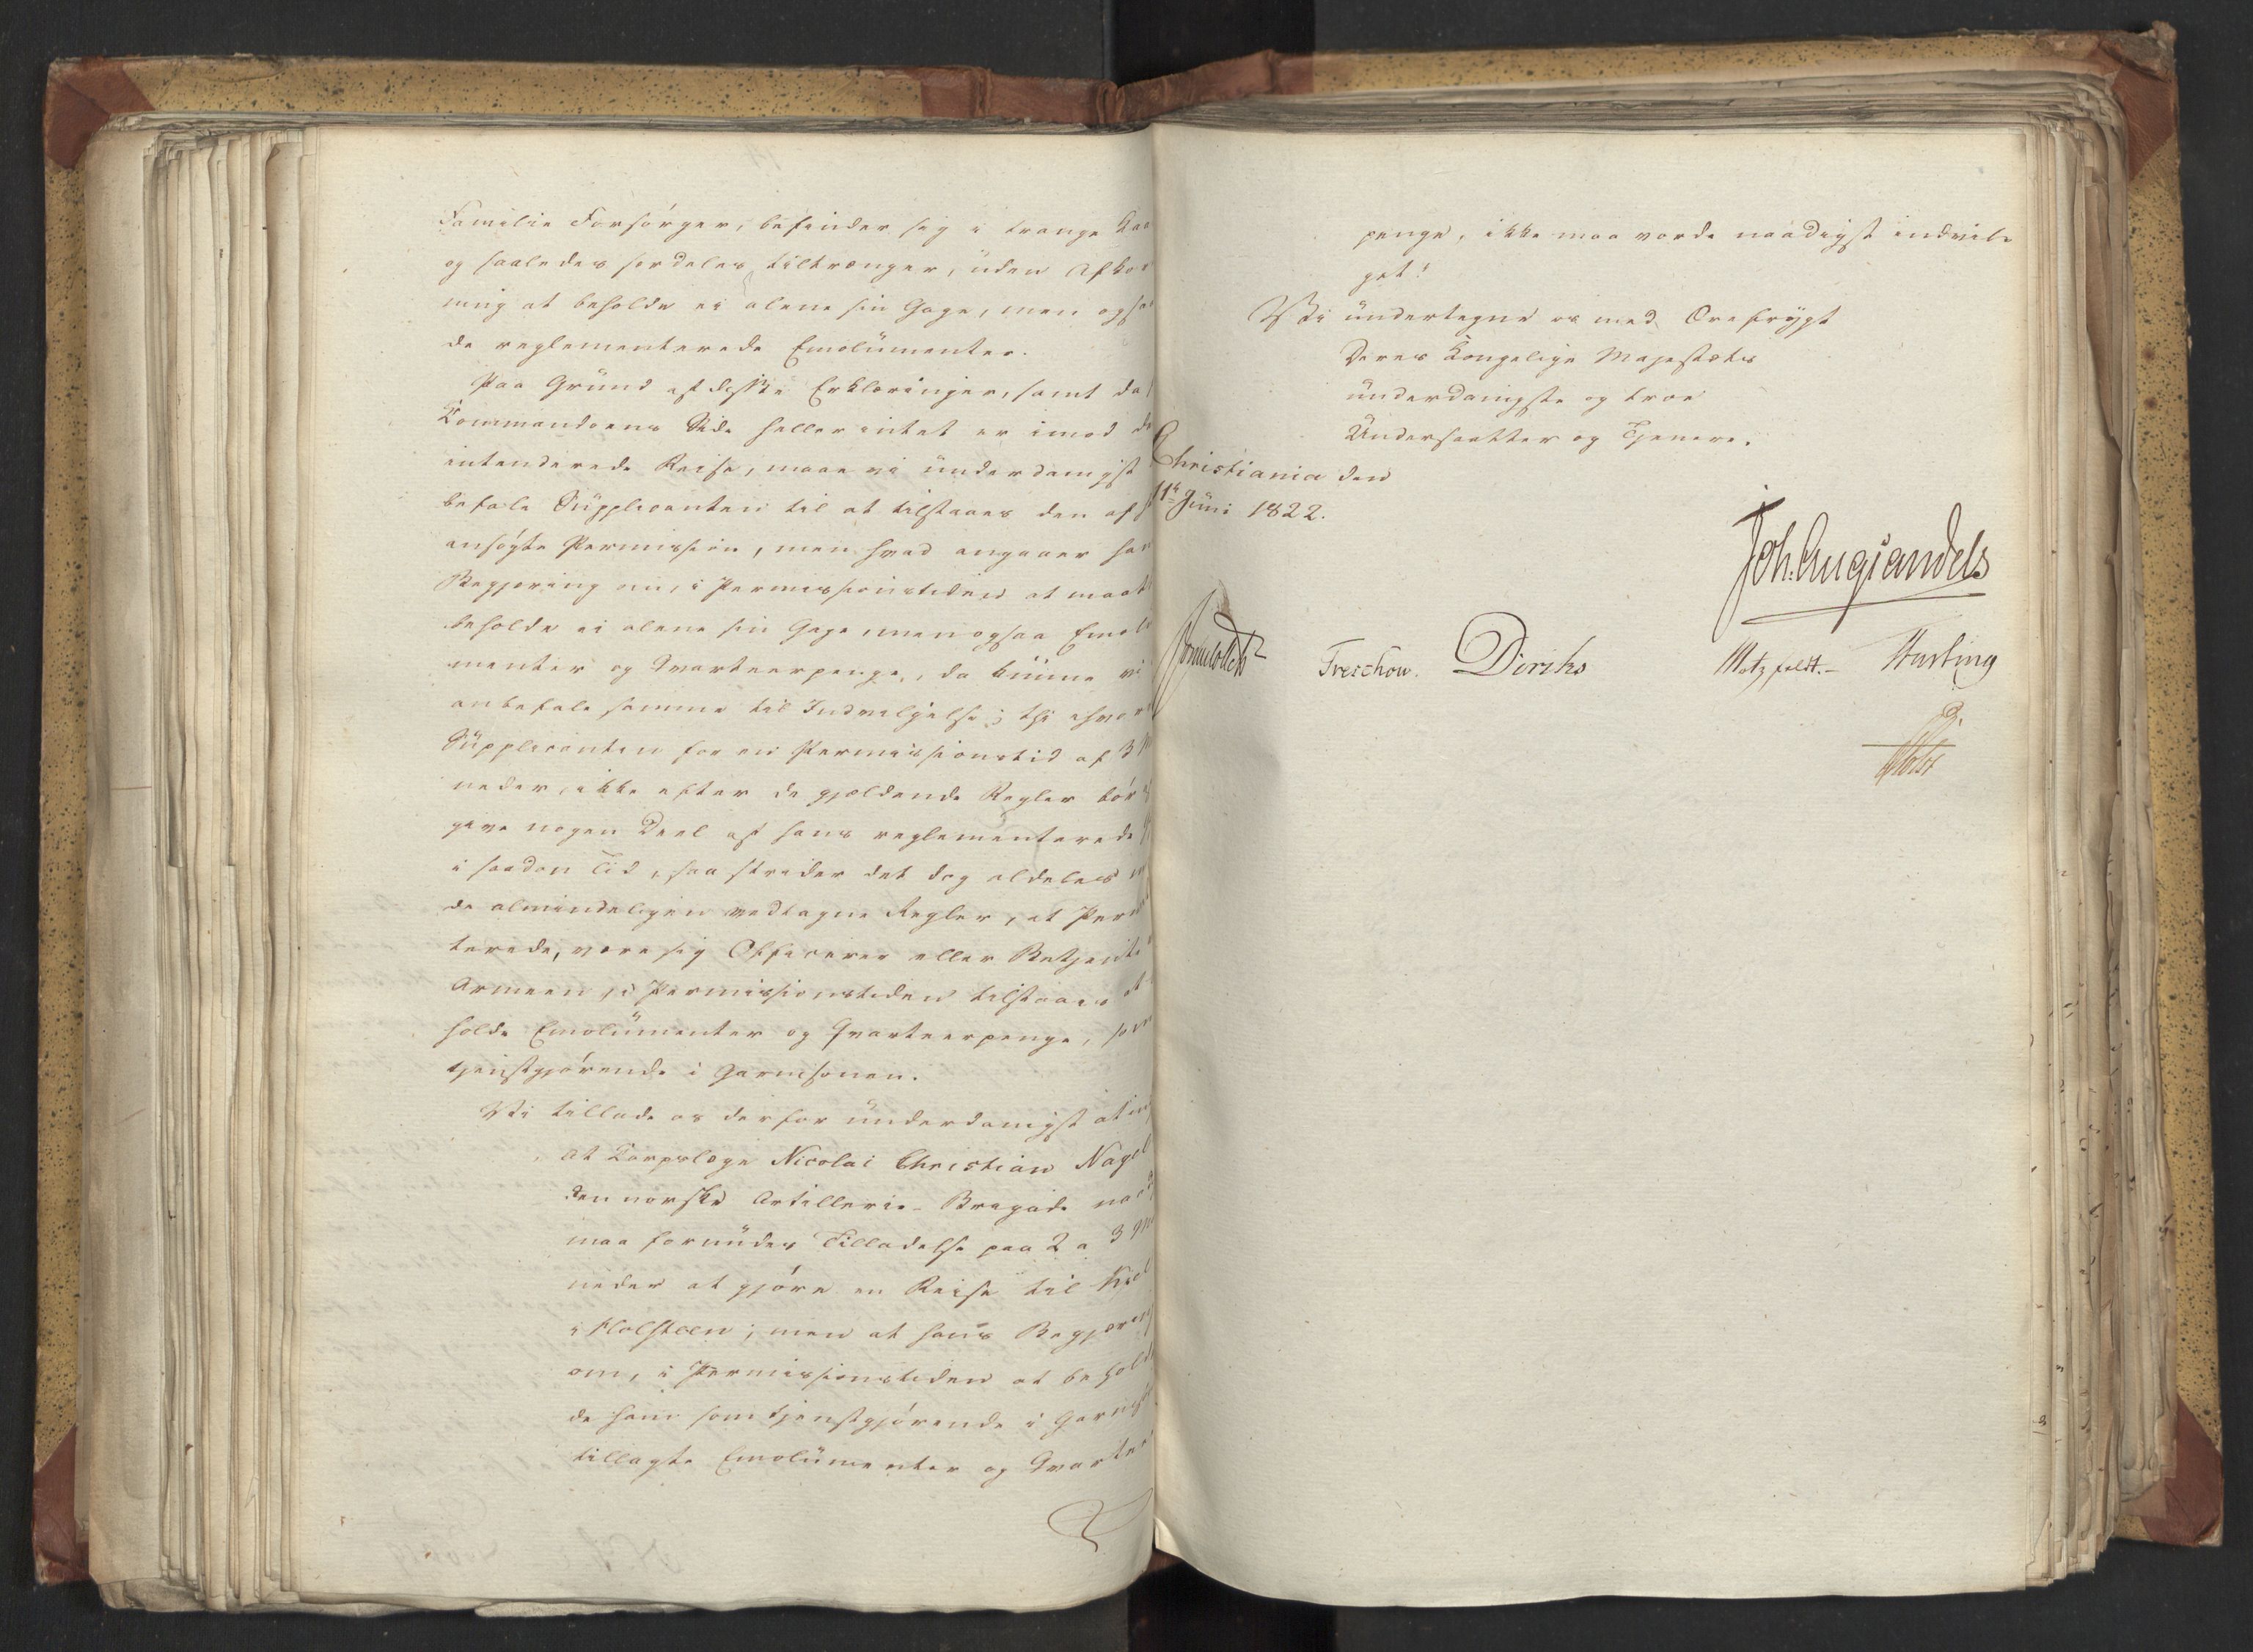 Familie Forsørger, befinder sig i trange Kaa
og saaledes særdeles tiltrænger, uden Afkor
ning at beholde ei alene sin Gage, men ogsaa
de reglementerede Emolumenter.
Paa Grund af disse Erklæringer, samt da
Kommandoens Side heller intet er imod de
intenderede Reise, maae vi underdanigst
befale Supplicanten til at tilstaaes den af
ansøgte Permission, men hvad angaaer han
Begjæring om, i Permissionstiden at maatte
beholde ei alene sin Gage, men ogsaa Emolu
menter og Qvarteerpenge, da kunne vi
anbefale samme til Indvilgelse; thi ihvor
Supplicanten for en Permissionstid af 3 M
neder, ikke efter de gjældende Regler bør
give nogen Deel af hans reglementerede
i saadan Tid, saa strider det dog aldeles
de almindeligen vedtagne Regler, at Perm
terede, være sig Officerer eller Betjente
Armeen, i Permissionstiden tilstaaes at
holde Emolumenter og Qvarteerpenge, som
tjenstgjørende i Garnisonen.
Vi tillade os derfor underdanigst at in
at Corpslæge Nicolai Christian Nagel
den norske Artillerie-Brigade naad
maa forundes Tilladelse paa 2 a 3 M
neder at gjøre en Reise til Kiel
i Holsteen; men at hans Begjæring
om, i Permissionstiden at behol
de ham som tjenstgjørende i Garnis
tillagte Emolumenter og Qvarteer
penge, ikke maa vorde naadigst indvil
get!
Vi undertegne os med Ærefrygt
Deres Kongelige Majestæts
underdanigste og troe
Undersaatter og Tjenere.
Christiania den
11te Juni 1822.
Joh: Aug Sandels
Sommerfeldt Treschow. Diriks Motzfeldt.- Fasting
Holst